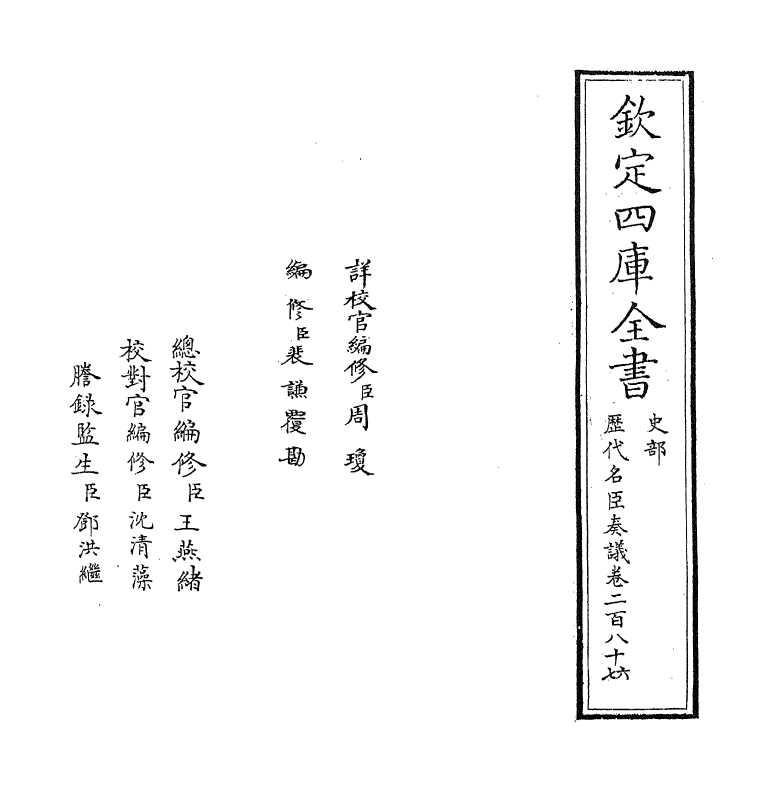 欽定四庫全書
史部
歷代名臣奏議卷二百八十六七
詳校官編修臣周瓊
編修臣裴謙覆勘
總校官編修臣王燕緒
校對官編修臣沈清藻
謄錄監生臣鄧洪繼